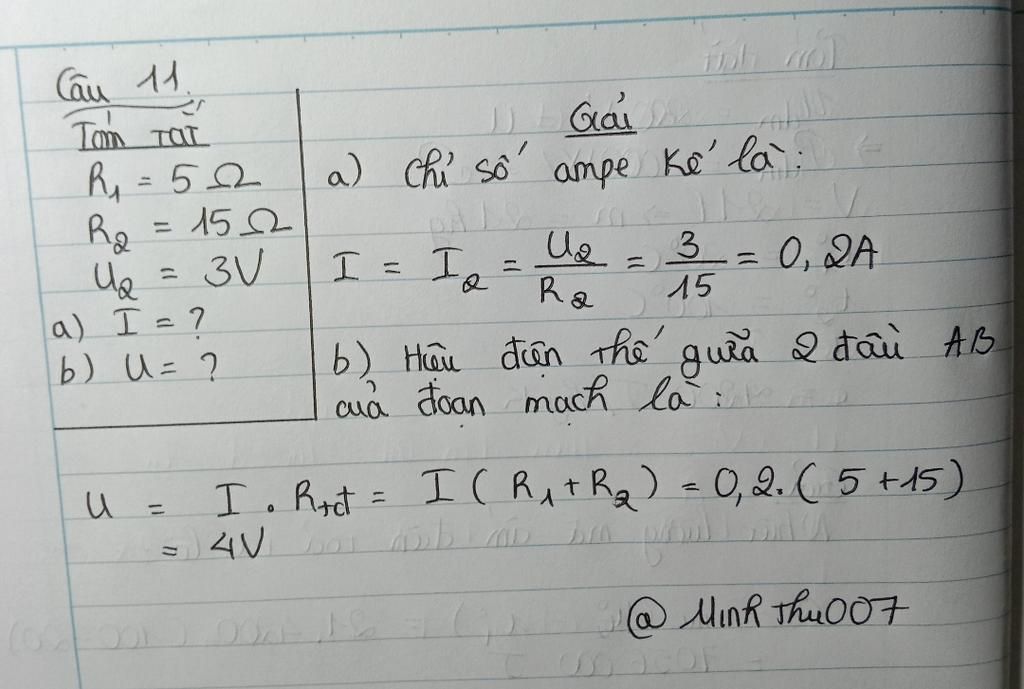 Câu 11.
Tóm tắt
R₁ = 5 Ω
R₂ = 15 Ω
U₂ = 3V
a) I = ?
b) U = ?
Giải
a) Chỉ số ampe kế là:
I = I₂ = U₂/R₂ = 3/15 = 0,2A
b) Hiệu điện thế giữa 2 đầu AB
của đoạn mạch là:
U = I . Rtđ = I ( R₁ + R₂ ) = 0,2. ( 5 + 15 )
= 4V
@ MinhThu007